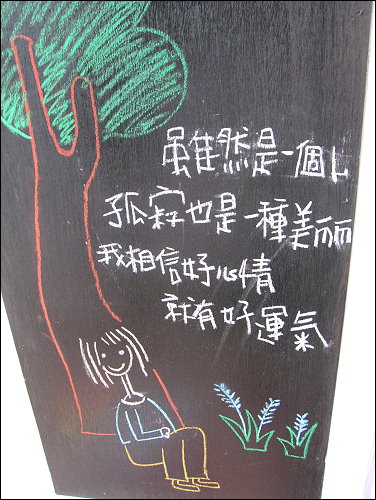 雖然是一個
孤寂也是一種美丽
我相信好心情
就有好運氣